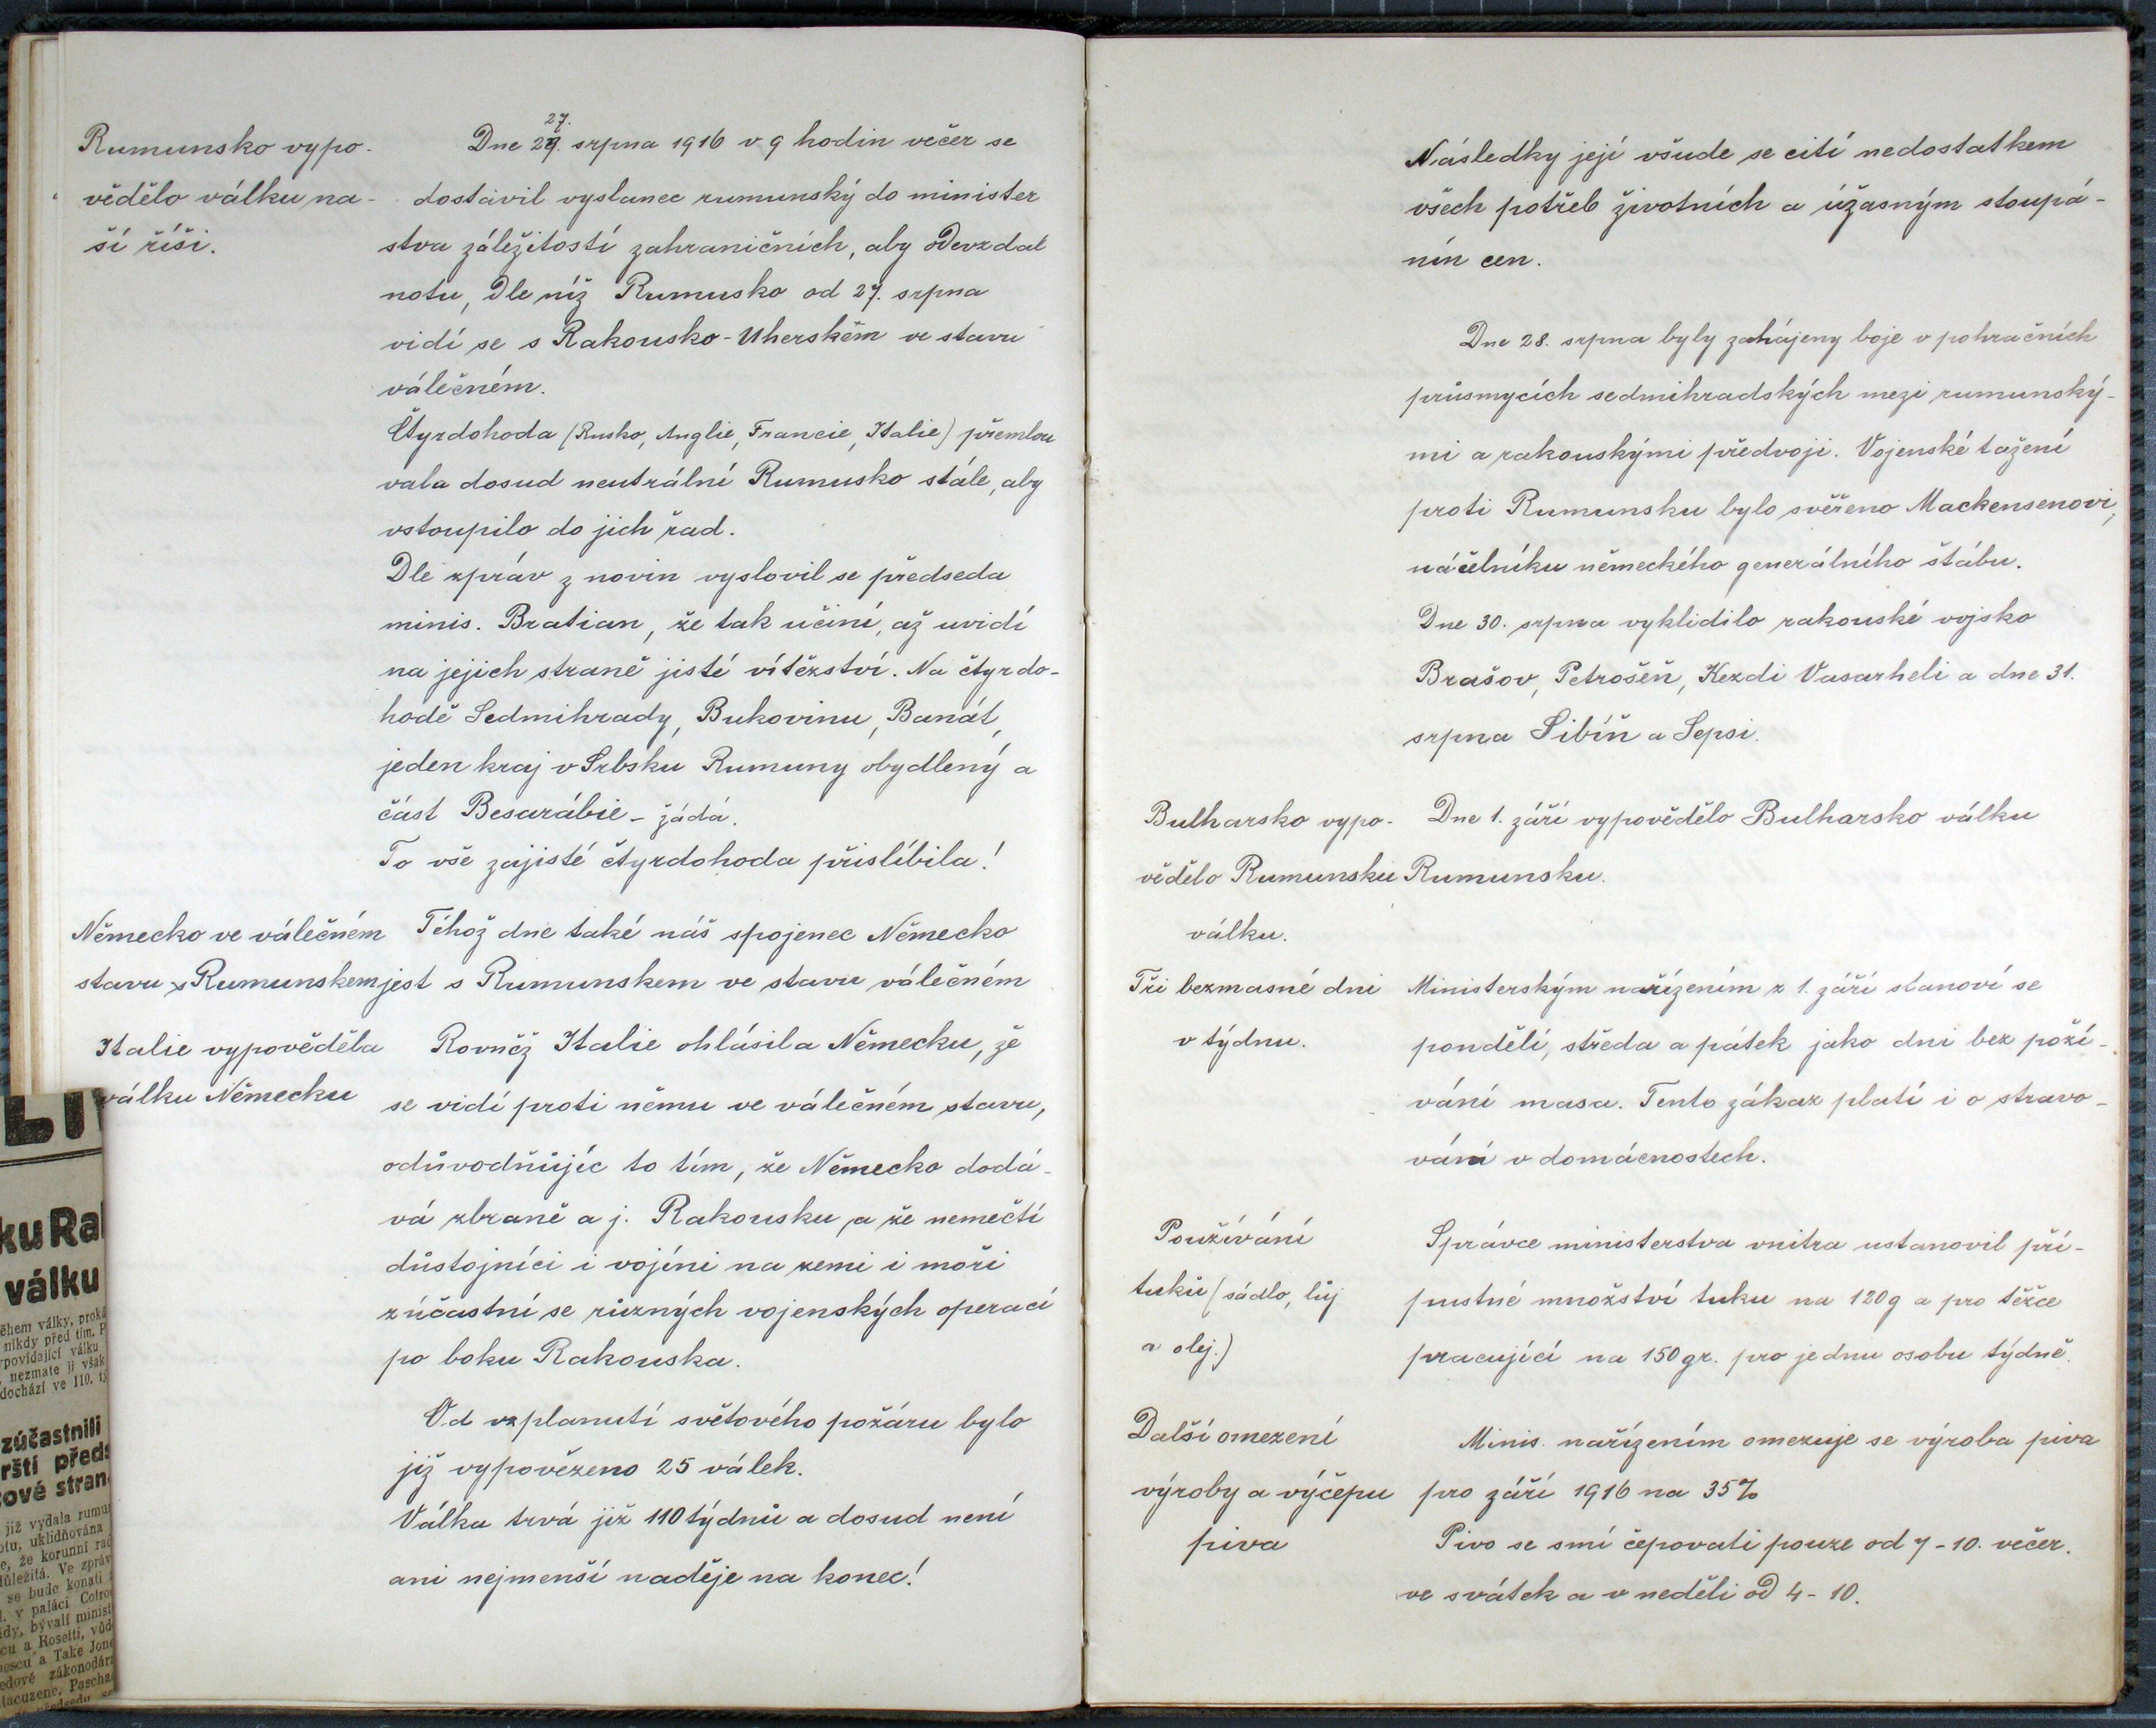 Rumunsko vypo-
vědělo válku na-
ší říši.
27.
Dne 29. srpna 1916 v 9 hodin večer se
dostavil vyslanec rumunský do minister
stva záležitostí zahraničních, aby odevzdal
notu, dle níž Rumusko od 27. srpna
vidí se s Rakousko-Uherském ve stavu
válečném.
Čtyrdohoda (Rusko, Anglie, Francie, Italie) přemlou
vala dosud neutrální Rumusko stále, aby
vstoupilo do jich řad.
Dle zpráv z novin vyslovil se předseda
minis. Bratian, že tak učiní, až uvidí
na jejich straně jisté vítězství. Na čtyrdo-
hodě Sedmihrady, Bukovinu, Banát,
jeden kraj v Srbsku Rumuny obydlený a
část Besarábie - žádá.
To vše zajisté čtyrdohoda přislíbila!
Německo ve válečném
stavu s Rumunskem
Téhož dne také náš spojenec Německo
jest s Rumunskem ve stavu válečném
Italie vypověděla
válku Německu
Rovněž Italie ohlásila Německu, že
se vidí proti němu ve válečném stavu,
odůvodňujíc to tím, že Německo dodá-
vá zbraně a j. Rakousku a že nemečtí
důstojníci i vojíni na zemi i moři
zúčastní se různých vojenských operací
po boku Rakouska.
Od vzplanutí světového požáru bylo
již vypovězeno 25 válek.
Válka trvá již 110 týdnů a dosud není
ani nejmenší naděje na konec!
ku Ra
válku
ěhem války, proká
nikdy před tím. P
povídající válku
nezmate ji však
dochází ve 110. tý
zúčastnili
ršti předs
ové stran
již vydala rumu
otu, uklidňována
e, že korunní rad
důležitá. Ve zpráv
se bude konati
v paláci Cotro
idy, bývalí minist
cu a Rosetti, vůd
pescu a Take Jone
edové zákonodár
tacuzene, Pascha
Následky její všude se cítí nedostatkem
všech potřeb životních a úžasným stoupá-
ním cen.
Dne 28. srpna byly zahájeny boje v pohračních
průsmycích sedmihradských mezi rumunský-
mi a rakouskými předvoji. Vojenské tažení
proti Rumunsku bylo svěřeno Mackensenovi,
náčelníku německého generálního štábu.
Dne 30. srpna vyklidilo rakouské vojsko
Brašov, Petrošěň, Kezdi Vasarheli a dne 31.
srpna Sibíň a Sepsi.
Bulharsko vypo-
vědělo Rumunsku
válku.
Dne 1. září vypovědělo Bulharsko válku
Rumunsku.
Tři bezmasné dni
v týdnu.
Ministerským nařízením z 1. září stanoví se
pondělí, středa a pátek jako dni bez poží-
vání masa. Tento zákaz platí i o stravo-
vání v domácnostech.
Používání
tuků (sádlo, lůj
a olej.)
Správce ministerstva vnitra ustanovil pří-
pustné množství tuku na 120g a pro těžce
pracující na 150 gr. pro jednu osobu týdně.
Další omezení
výroby a výčepu
piva
Minis. nařízením omezuje se výroba piva
pro září 1916 na 35%
Pivo se smí čepovati pouze od 7-10. večer.
ve svátek a v neděli od 4-10.